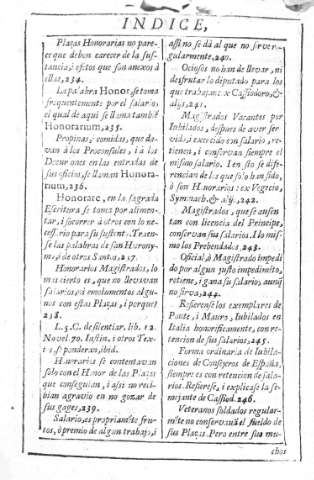 INDICE,
Plaças Honorarias no pare-
ce que deben carecer de la sus-
tancia, i efetos que son anexos à
ellas, 234.
La palabra Honor, se toma
frequentemente por el salario,
el qual de aqui se llama tambiē
Honorarium, 235.
Propinas, comidas, que da-
van à los Proconsules, i à los
Decuriones en las entradas de
sus oficios, se llaman Honora-
rium, 236.
Honorare, en la sagrada
Escritura se toma por alimen-
tar, i socorrer à otros con lo ne-
cessario para su sustento. Traen-
se las palabras de san Hierony-
mo, i de otros Santos, 237.
Honorarios Magistrados, lo
mas cierto es, que no llevavan
salarios, ni emolumentos algu-
nos con estas Plaças, i porquè?
238.
L. 3. C. de silentiar. lib. 12.
Novel. 70. Iustin. i otros Tex-
tos, se ponderan, ibid.
Honorarios se contentavan
solo con el Honor de las Plaças
que conseguian, i assi no reci-
bian agravio en no gozar de
sus gages, 239.
Salario, es propriamēte fru-
to, ò premio de algun trabajo, i
assi no se dà al que no sirve re-
gularmente, 240.
Ociosos no han de llevar, ni
desfrutar lo diputado para los
que trabajan: ex Casiodoro, &
alijs, 241.
Magistrados Vacantes por
Iubilados, despues de aver ser-
vido, i exercido con salario, re-
tienen, i conservan siempre el
mismo salario. I en esto se dife-
rencian de los que solo han sido,
ò son Honorarios: ex Vegecio,
Symmach. & alijs, 242.
Magistrados, que se ausen-
tan con licencia del Principe,
conservan sus salarios. I lo mis-
mo los Prebendados, 243.
Oficial, ò Magistrado impedi-
do por algun justo impedimēto,
retiene, i gana su salario, aunq̄
no sirva, 244.
Refierense los exemplares de
Ponte, i Mauro, Iubilados en
Italia honorificamente, con re-
tencion de sus salarios, 245.
Forma ordinaria de Iubila-
ciones de Consejeros de España,
siempre es con retencion de sala-
rios. Refierese, i explicase la se-
mejante de Cassiod. 246.
Veteranos soldados regular-
mēte no conservavā el sueldo de
sus Plaças. Pero entre sus mu-
chos